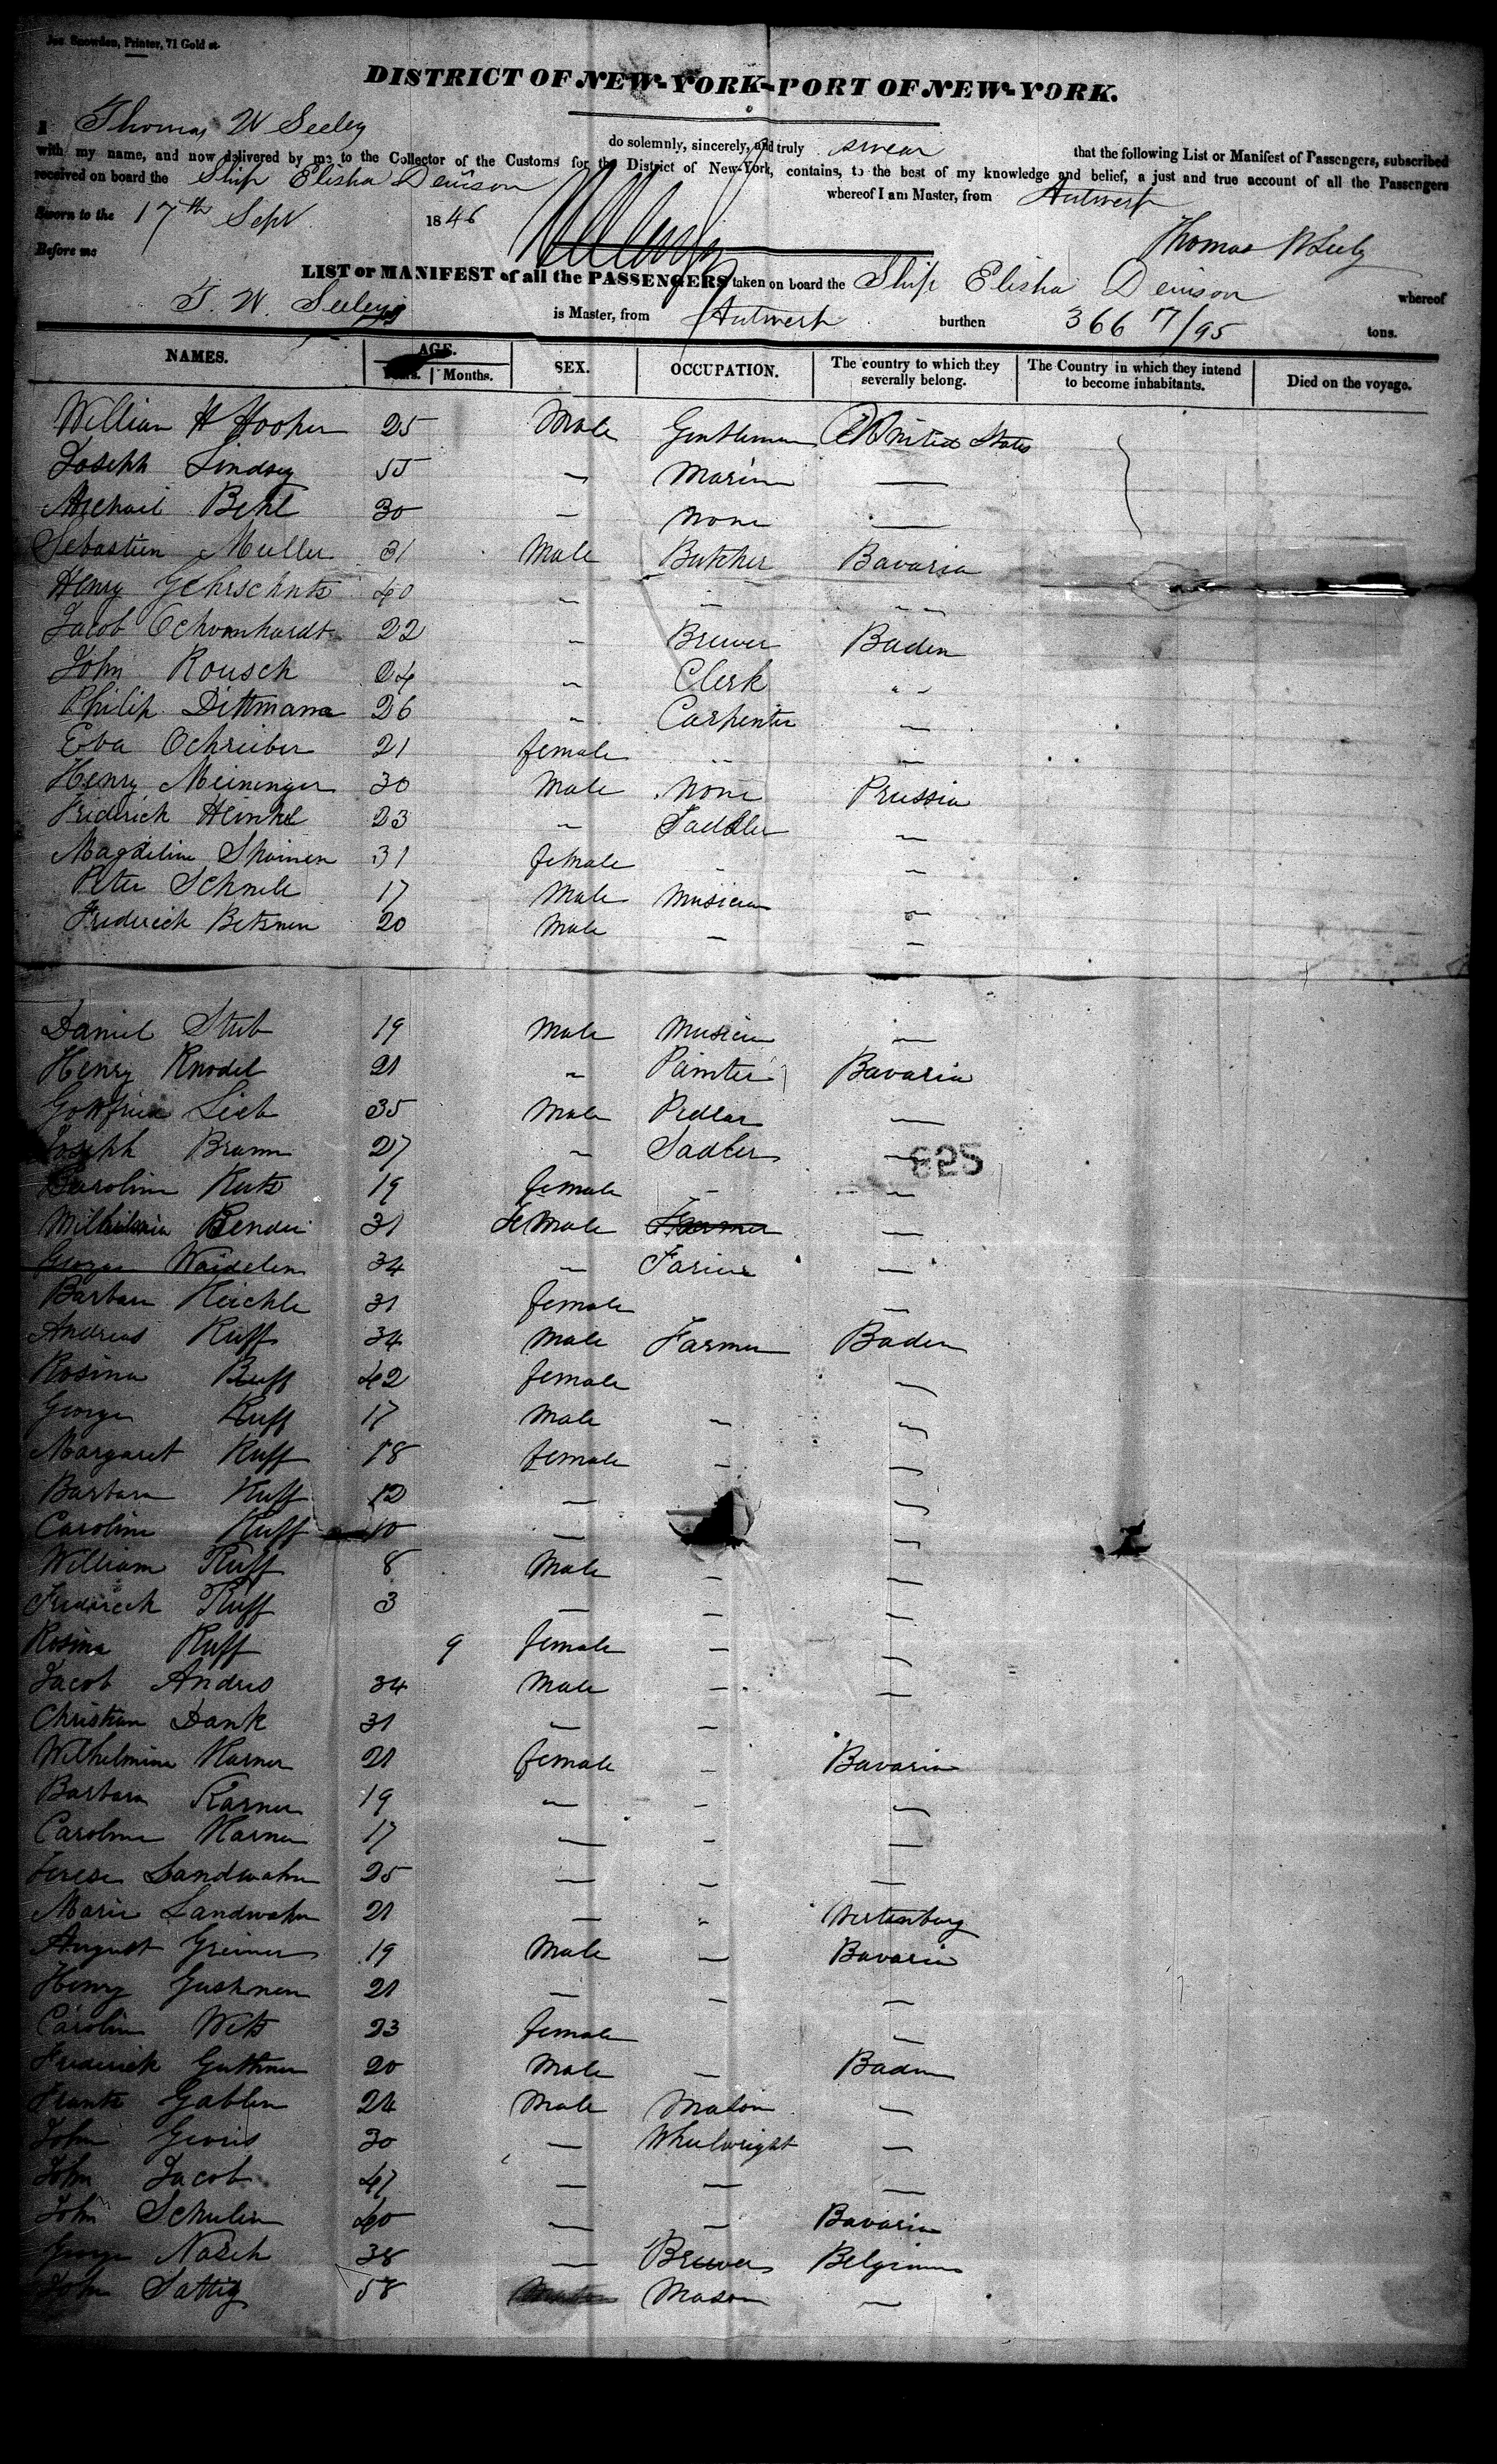 Jas. Snowden, Printer, 71 Gold st.
DISTRICT OF NEW-YORK-PORT OF NEW-YORK.
I Thomas W Seeley do solemnly, sincerely, and truly swear that the following List or Manifest of Passengers, subscribed
with my name, and now delivered by me to the Collector of the Customs for the District of New-York, contains, to the best of my knowledge and belief, a just and true account of all the Passengers
received on board the Ship Elisha Denison whereof I am Master, from Antwerp
Sworn to the 17th Sept 1846
Thomas W Seely
Before me
LIST or MANIFEST of all the PASSENGERS taken on board the Ship Elisha Denison whereof
T. W. Seeley is Master, from Antwerp burthen 366 7/95 tons.
NAMES. AGE. Years. Months. SEX. OCCUPATION. The country to which they severally belong. The Country in which they intend to become inhabitants. Died on the voyage.
William H Hooper 25 Male Gentleman United States
Joseph Lindsey 55 — Marin —
Michail Behl 30 — None —
Sebastien Muller 31 Male Butcher Bavaria
Henry Gehrschutz 40 — — —
Jacob Schvonhardt 22 — Brewer Baden
John Rousch 24 — Clerk "
Philip Dittmann 26 — Carpenter —
Eva Schreiber 21 female — —
Henry Meininger 30 Male None Prussia
Friderick Heinkel 23 — Saddler —
Magdeline Shoinen 31 female — —
Peter Schnele 17 Male Musician —
Frederick Betsmen 20 Male — —
Daniel Stub 19 Male Musician —
Henry Knodel 21 — Painter Bavaria
Gottfried Lieb 35 Male Pedlar —
Joseph Brunn 27 — Sadler —
825
Caroline Kutz 19 female — —
Wilhelmia Bender 31 FeMale Farmer —
George Waidelen 34 — Farier —
Barbara Heichle 31 female —
Andreas Ruff 34 Male Farmer Baden
Rosina Ruff 42 female —
George Ruff 17 Male — —
Margaret Ruff 18 female — —
Barbara Ruff 12 — —
Caroline Ruff 10 — —
William Ruff 8 Male — —
Friderick Ruff 3 — — —
Rosina Ruff 9 female — —
Jacob Andres 34 Male — —
Christian Dank 31 — —
Wilhelmine Karner 21 female — Bavaria
Barbara Karner 19 — — —
Caroline Karner 17 — — —
Terese Landwahn 25 — — —
Marie Landwahn 21 — — Wirtenburg
August Greiner 19 Male — Bavaria
Henry Gushmen 21 — — —
Carolin Witz 23 female —
Frederick Guthmen 20 Male — Baden
Frantz Gablen 24 Male Mason —
John Gioris 30 — Wheelwright —
John Jacob 47 — — —
John Schulin 40 — — Bavaria
George Nasch 38 — Brewer Belgium
John Sattig 58 Mason —